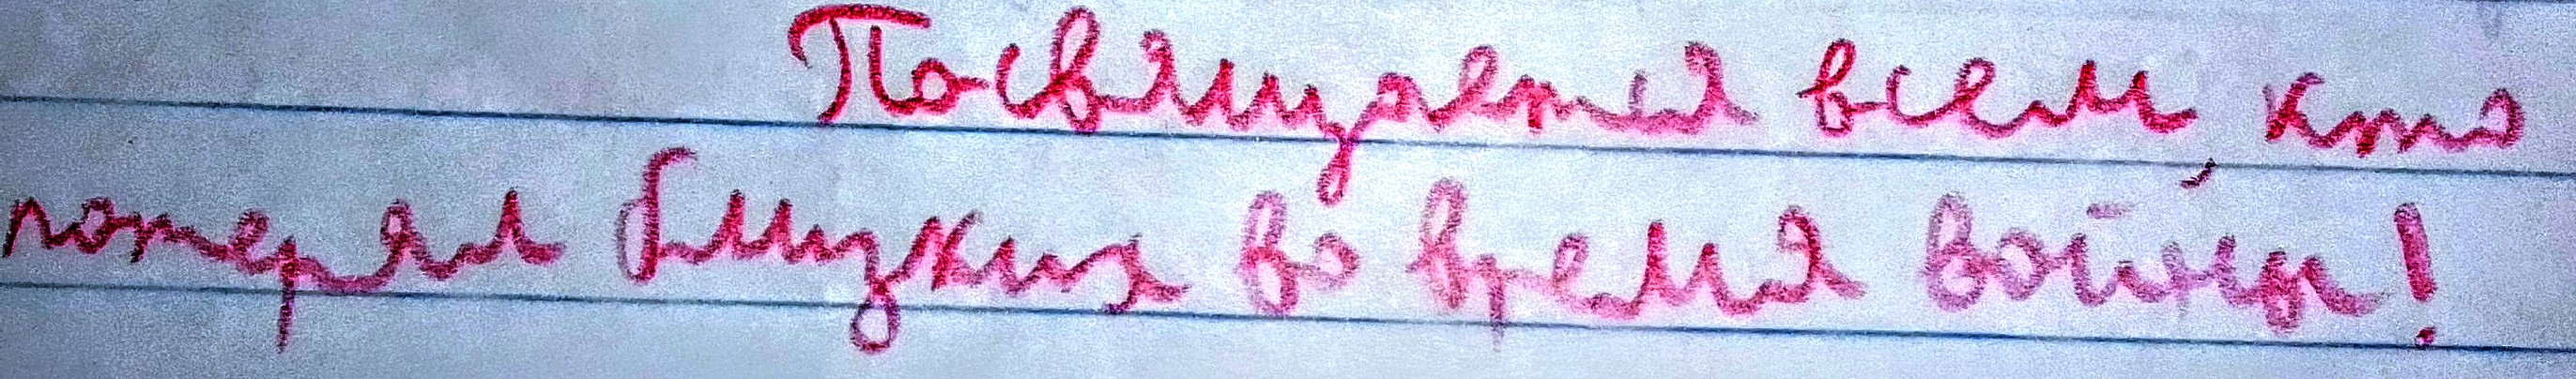 Посвящается всем, кто
потерял близких во время войны!